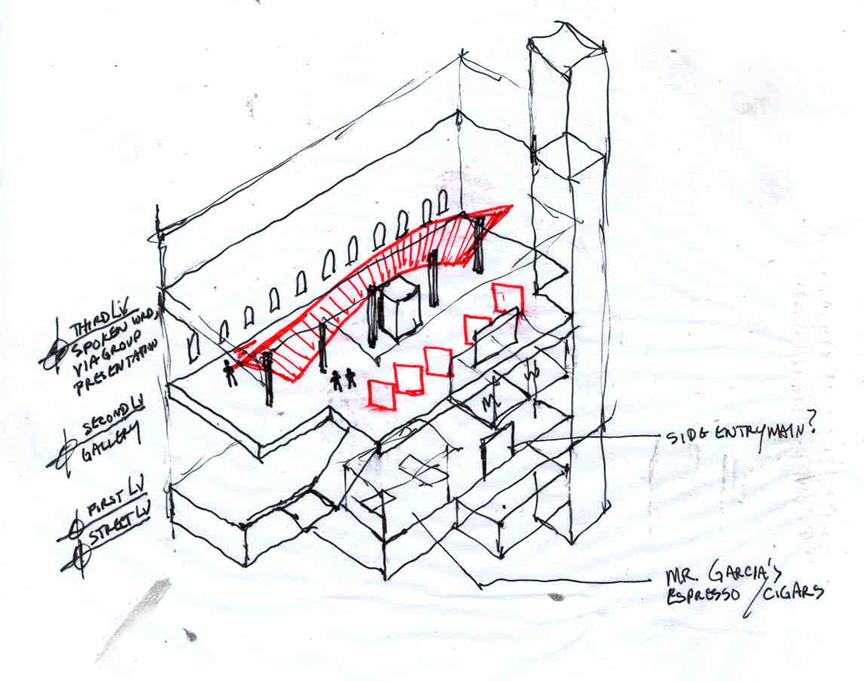 THIRD LV
SPOKEN WRD,
VIA GROUP
PRESENTATION
SECOND LV
GALLERY
FIRST LV
STREET LV
SIDE ENTRY MAIN?
MR. GARCIA'S
ESPRESSO / CIGARS